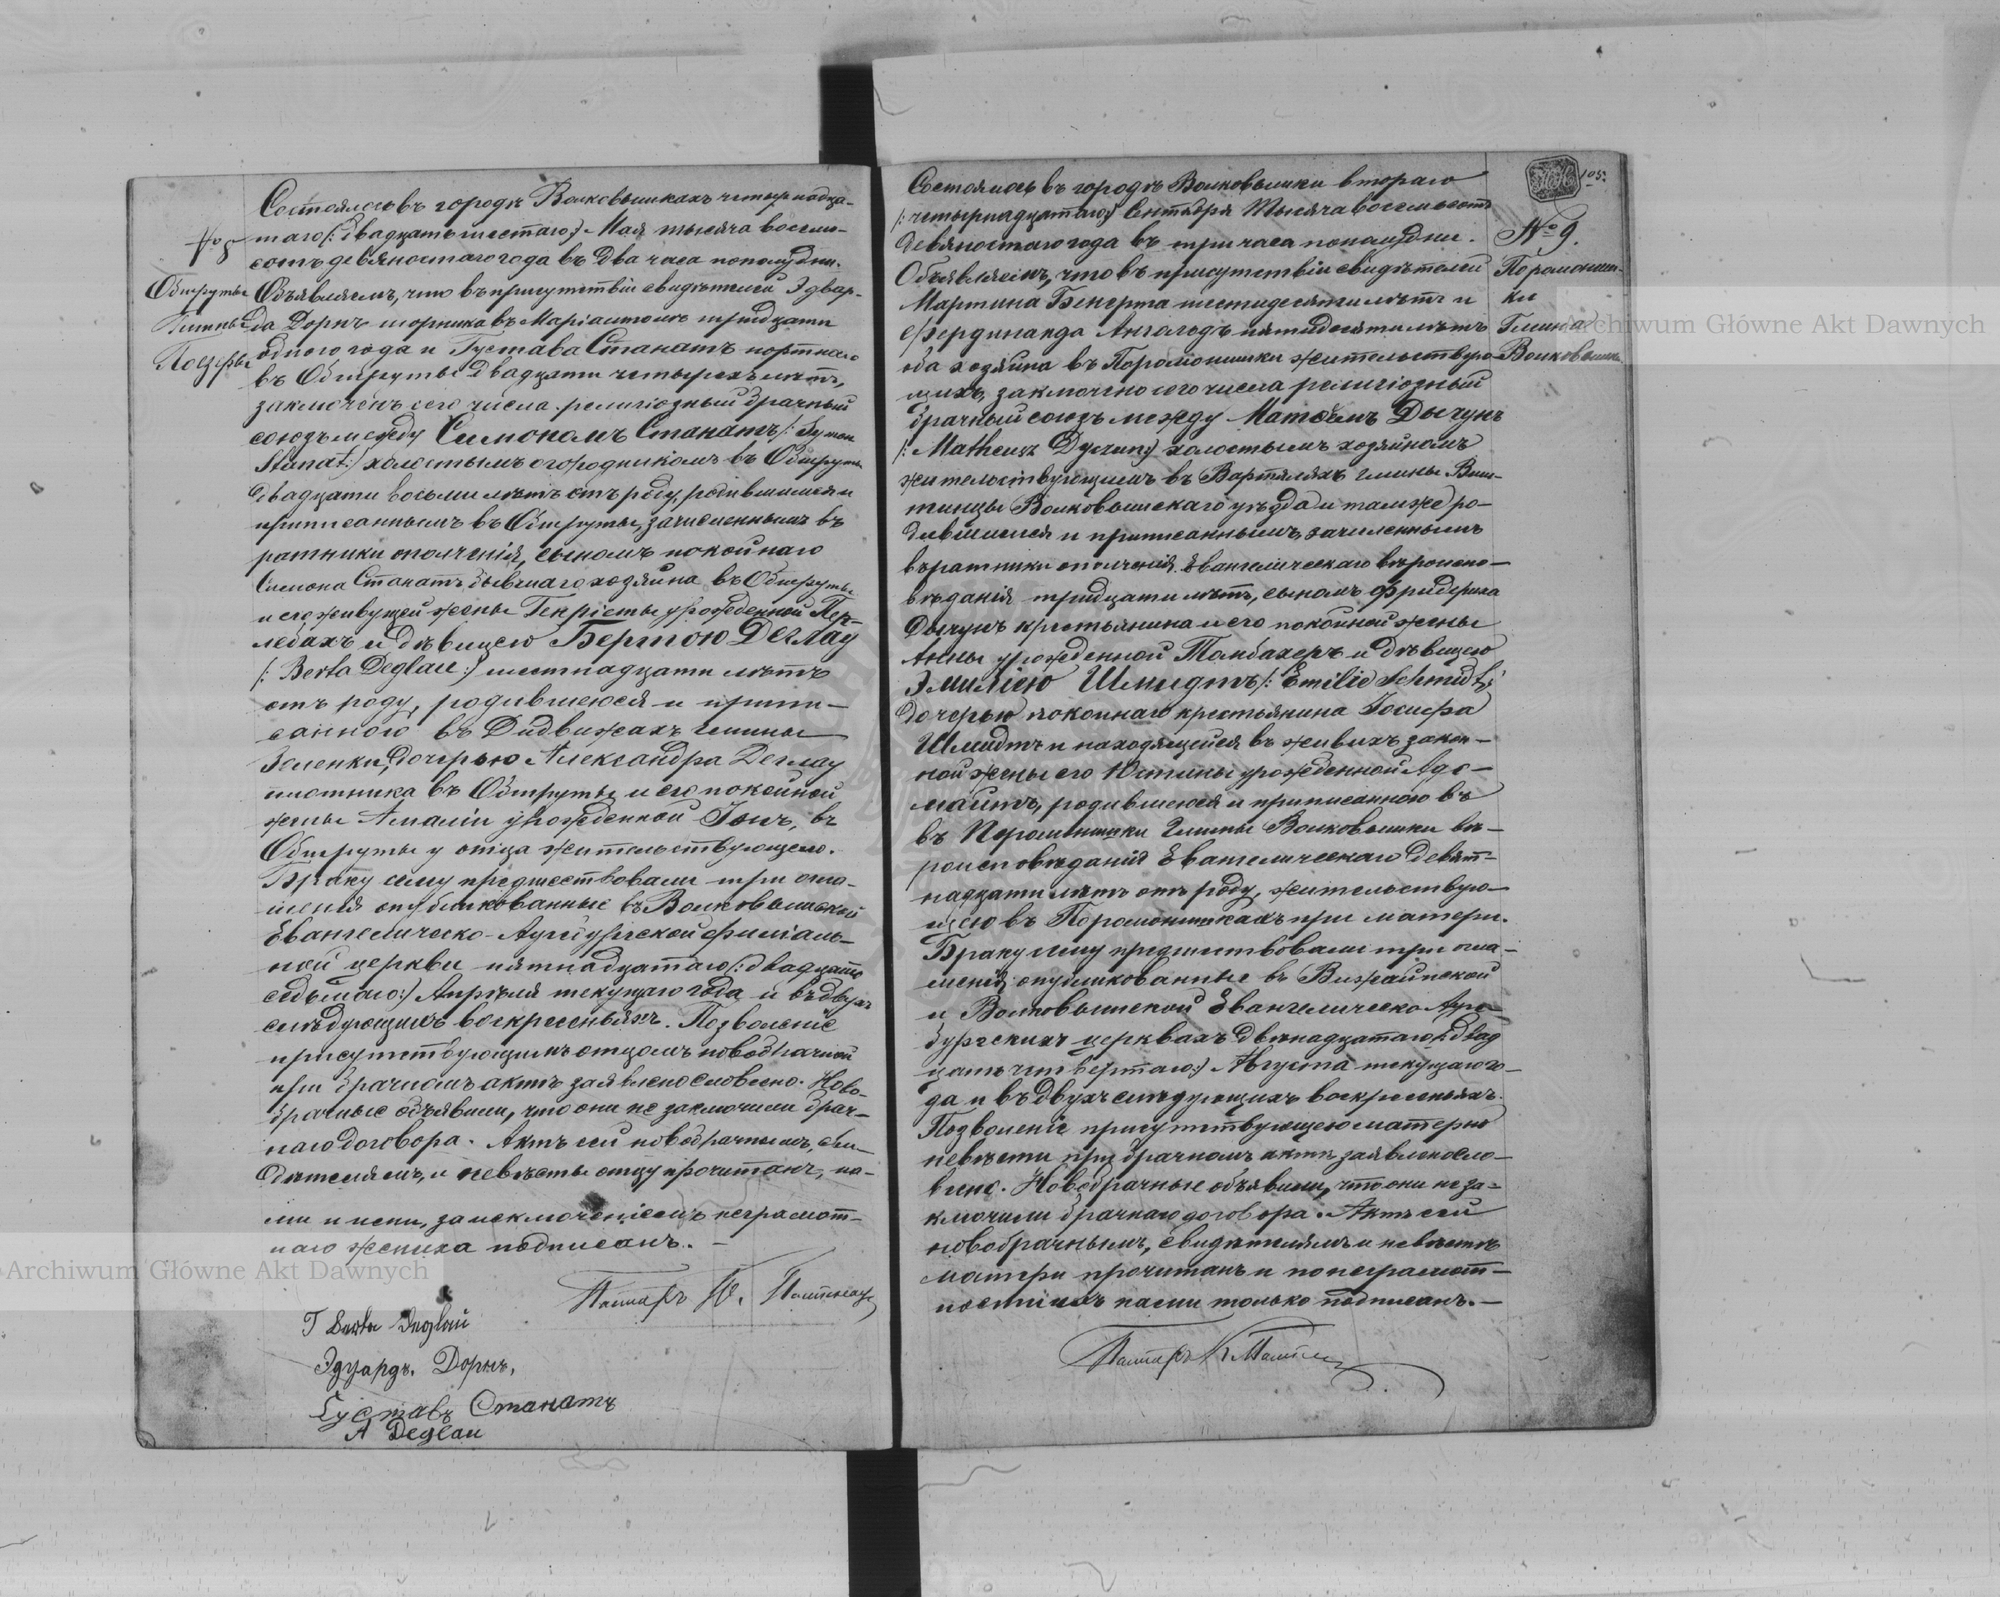 Состоялось въ городѣ Волковышкахъ четырнадца-
таго /:двадцать шестаго:/ Мая тысяча восемь-
сотъ девяностаго года въ два часа пополудни.
Объявляемъ, что въ присутствіи свидѣтелей Эдвар-
да Дорнъ шорника въ Маріамполѣ тридцати
одного года и Густава Станатъ портнаго
въ Обшруты двадцати четырехъ лѣтъ,
заключенъ сего числа религіозный брачный
союзъ между Симономъ Станатъ /:Symon
Stanat:/ холостымъ огородникомъ въ Обшруты
двадцати восьми лѣтъ отъ роду, родившимся и
приписаннымъ въ Обшруты, зачисленнымъ въ
ратники ополченія, сыномъ покойнаго
Симона Станатъ бывшаго хозяина въ Обшруты
и его живущей жены Генріеты урожденной Пер-
лебахъ и дѣвицею Бертою Деглау
/:Berta Deglau:/ шестнадцати лѣтъ
отъ роду, родившеюся и припи-
санною въ Дидвижахъ гмины
Зеленки, дочерью Александра Деглау
плотника въ Обшруты и его покойной
жены Амаліи урожденной Іонъ, въ
Обшруты у отца жительствующею.
Браку сему предшествовали три огла-
шенія опубликованные въ Волковышской
Евангелическо-Аугсбургской филіаль-
ной церкви пятнадцатаго /:двадцать
седьмаго:/ Апрѣля текущаго года и въ двухъ
слѣдующихъ воскресеньяхъ. Позволеніе
присутствующимъ отцомъ новобрачной
при брачномъ актѣ заявлено словесно. Ново-
брачные объявили, что они не заключили брач-
наго договора. Актъ сей новобрачнымъ, сви-
дѣтелямъ, и невѣсты отцу прочитанъ, на-
ми и ими, за исключеніемъ неграмот-
наго жениха подписанъ. —
Пасторъ
Berta Deglau
Эдуардъ Дорнъ,
Густавъ Станатъ
A Deglau
Обшруты
Гмины
105.
№ 9.
Поромонши-
ки
Гмина
Волковышки
Состоялось въ городѣ Волковышки втораго
/:четырнадцатаго:/ Сентября тысяча восемьсотъ
девяностаго года въ три часа пополудни.
Объявляемъ, что въ присутствіи свидѣтелей
Мартина Бекерта шестидесяти лѣтъ и
Фердинанда Ангольдъ пятидесяти лѣтъ
оба хозяина въ Поромоншики жительствую-
щихъ, заключено сего числа религіозный
брачный союзъ между Матѳемъ Дычунъ
/:Matheusz Dyczun:/ холостымъ хозяиномъ
жительствующимъ въ Вартеляхъ гмины Виш-
тинцы Волковышскаго уѣзда и тамже ро-
дившимся и приписаннымъ, зачисленнымъ
въ ратники ополченія Евангелическаго вѣроиспо-
вѣданія тридцати лѣтъ, сыномъ Фридериха
Дычунъ крестьянина и его покойной жены
Анны урожденной Томбахеръ и дѣвицею
Эмиліею Шмидтъ /:Emilie Schmidt:/
дочерью покойнаго крестьянина Іосифа
Шмидтъ и находящейся въ живыхъ закон-
ной жены его Юстины урожденной Адо-
майтъ, родившеюся и приписанною въ
въ Поромоншики Гмины Волковышки вѣ-
роисповѣданія Евангелическаго девят-
надцати лѣтъ отъ роду, жительствую-
щею въ Поромоншикахъ при матери.
Браку сему предшествовали три огла-
шенія опубликованные въ Вижайнской
и Волковышской Евангелическо-Аугс-
бургскихъ церквахъ двенадцатаго /:двад
цать четвертаго:/ Августа текущаго го-
да и въ двухъ слѣдующихъ воскресеньяхъ.
Позволеніе присутствующею матерью
невѣсты при брачномъ актѣ заявлено сло-
весно. Новобрачные объявили, что они не за-
ключили брачнаго договора. Актъ сей
новобрачнымъ, свидѣтелямъ и невѣсты
матери прочитанъ и по неграмот-
ности ихъ нами только подписанъ. —
Пасторъ
Archiwum Główne Akt Dawnych
Archiwum Główne Akt Dawnych